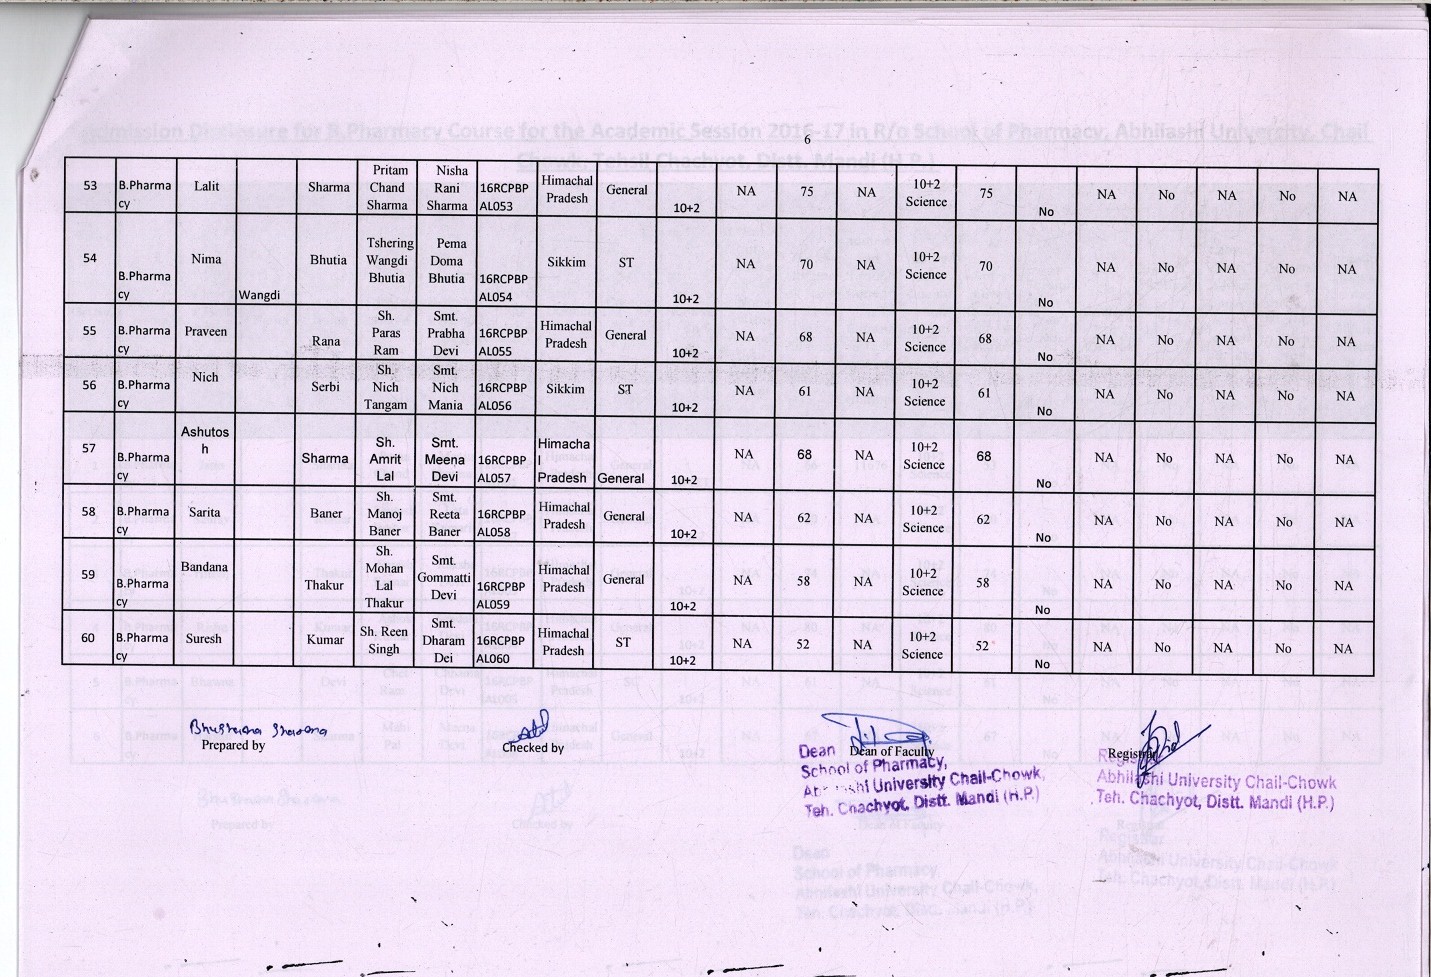 Admission Disclosure for B.Pharmacy Course for the Academic Session 2016-17 in R/o School of Pharmacy, Abhilashi University, Chail
Chowk, Tehsil Chachyot, Distt. Mandi (H.P.)
6
53 B.Pharma cy Lalit Sharma Pritam Chand Sharma Nisha Rani Sharma 16RCPBP AL053 Himachal Pradesh General 10+2 NA 75 NA 10+2 Science 75 No NA No NA No NA
54 B.Pharma cy Nima Wangdi Bhutia Tshering Wangdi Bhutia Pema Doma Bhutia 16RCPBP AL054 Sikkim ST 10+2 NA 70 NA 10+2 Science 70 No NA No NA No NA
55 B.Pharma cy Praveen Rana Sh. Paras Ram Smt. Prabha Devi 16RCPBP AL055 Himachal Pradesh General 10+2 NA 68 NA 10+2 Science 68 No NA No NA No NA
56 B.Pharma cy Nich Serbi Sh. Nich Tangam Smt. Nich Mania 16RCPBP AL056 Sikkim ST 10+2 NA 61 NA 10+2 Science 61 No NA No NA No NA
57 B.Pharma cy Ashutos h Sharma Sh. Amrit Lal Smt. Meena Devi 16RCPBP AL057 Himacha l Pradesh General 10+2 NA 68 NA 10+2 Science 68 No NA No NA No NA
58 B.Pharma cy Sarita Baner Sh. Manoj Baner Smt. Reeta Baner 16RCPBP AL058 Himachal Pradesh General 10+2 NA 62 NA 10+2 Science 62 No NA No NA No NA
59 B.Pharma cy Bandana Thakur Sh. Mohan Lal Thakur Smt. Gommatti Devi 16RCPBP AL059 Himachal Pradesh General 10+2 NA 58 NA 10+2 Science 58 No NA No NA No NA
60 B.Pharma cy Suresh Kumar Sh. Reen Singh Smt. Dharam Dei 16RCPBP AL060 Himachal Pradesh ST 10+2 NA 52 NA 10+2 Science 52 No NA No NA No NA
Prepared by
Checked by
Dean of Faculty
Dean
School of Pharmacy,
Abhilashi University Chail-Chowk,
Teh. Chachyot, Distt. Mandi (H.P.)
Registrar
Registrar
Abhilashi University Chail-Chowk
Teh. Chachyot, Distt. Mandi (H.P.)